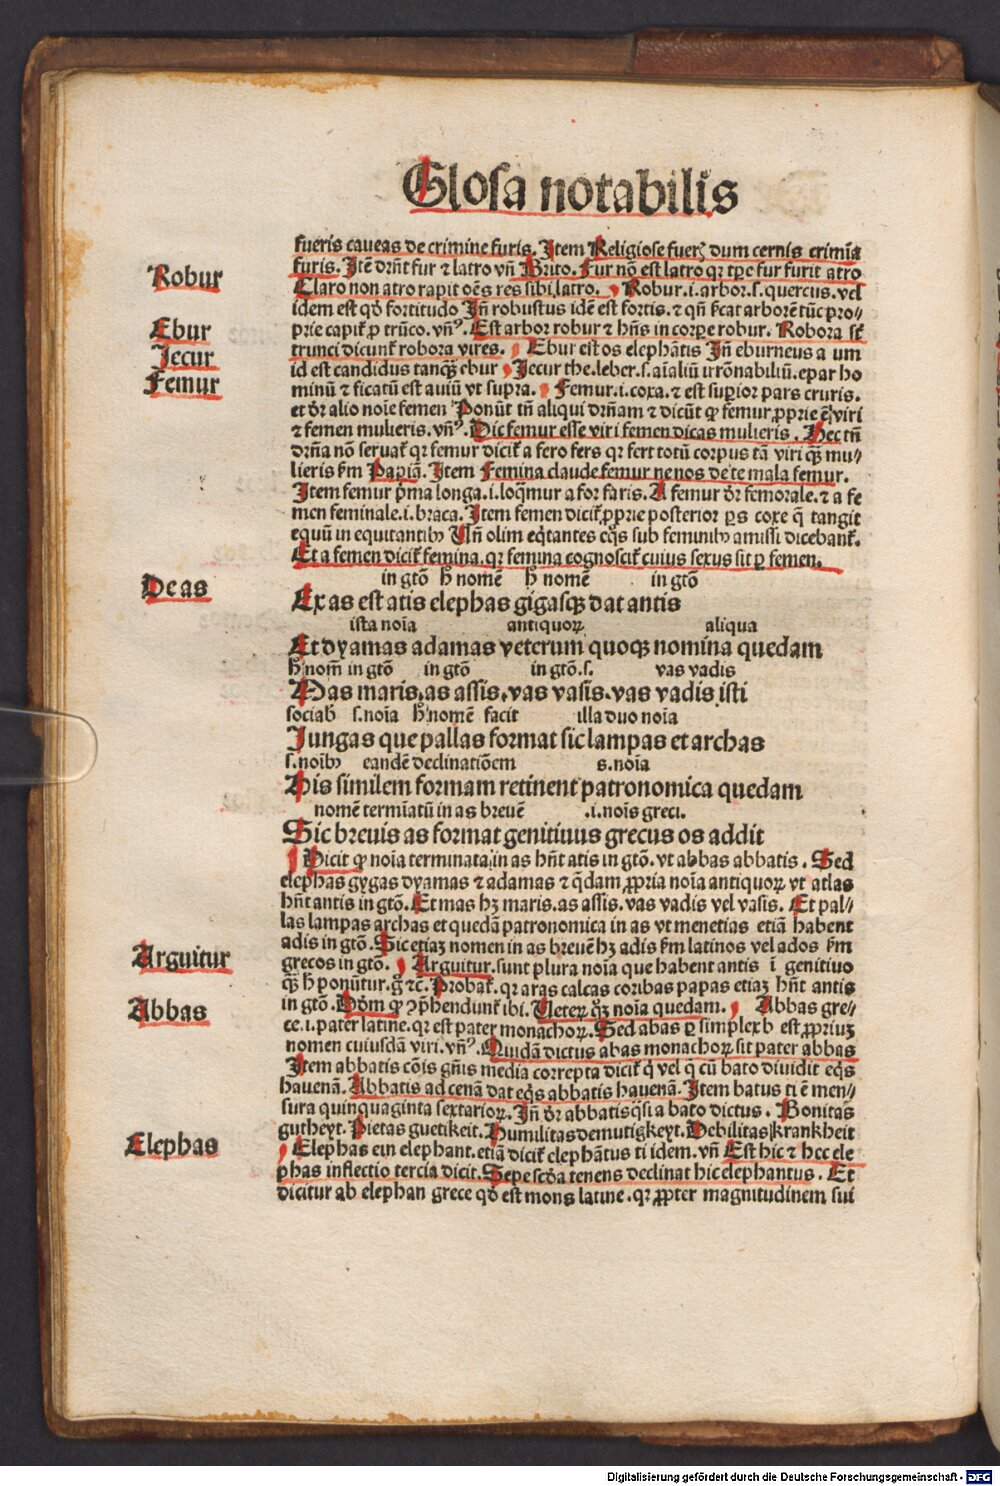 Glosa notabilis
fueris caueas de crimine furis. Item Religiose fuerꝫ dum cernis crimīa
furis. Itē drñt fur ⁊ latro vñ Brito. Fur nō est latro qꝛ tꝑe fur furit atro
Claro non atro rapit oēs res sibi latro. Robur .i. arbor .s. quercus. vel
Robur
idem est qd̄ fortitudo Iñ robustus idē est fortis. ⁊ qñ ſicat arborē tūc pro-
prie capiť ꝓ trūco. vñ. Est arbor robur ⁊ hñs in corꝑe robur. Robora sť
Ebur
trunci dicunť robora vires. Ebur est os elephātis Iñ eburneus a um
Jecur
id est candidus tanqꝫ ebur Jecur the. leber .s. aīaliū irrōnabiliū. epar ho
Femur
minū ⁊ ficatū est auiū vt supra. Femur .i. coxa. ⁊ est suꝑior pars cruris.
et dr̄ alio noīe femen Ponūt tñ aliqui drñam ⁊ dicūt ꝙ femur ꝓprie ē viri
⁊ femen mulieris. vñ. Dic femur esse viri femen dicas mulieris. Hec tñ
drña nō seruať qꝛ femur diciť a fero fers qꝛ fert totū corpus tā viri qꝫ mu-
lieris ẜm Papiā. Item Femina claude femur ne nos de te mala femur.
Item femur ṗma longa .i. loq̄mur a for faris. A femur dr̄ femorale. ⁊ a fe
men feminale .i. braca. Item femen diciť ꝓprie posterior ꝑs coxe q̄ tangit
equū in equitantibꝰ Uñ olim eq̇tantes eq̄s sub feminibꝰ amissi dicebanť.
Et a femen diciť femina. qꝛ femina cognosciť cuius sexus sit ꝑ femen.
in gtō hͦ nomē hͦ nomē in gtō
De as
Ex as est atis elephas gigasqꝫ dat antis
ista noīa antiquoꝝ aliqua
Et dyamas adamas veterum quoqꝫ nomina quedam
hͦ nom̄ in gtō in gtō in gtō .s. vas vadis
Mas maris, as assis, vas vasis. vas vadis isti
sociab̄ .s. noīa hͦ nomē facit illa duo noīa
Jungas que pallas format sic lampas et archas
s. noībꝰ eandē declinatiōem s. noīa
His similem formam retinent patronomica quedam
nomē termīatū in as breuē .i. noīs greci.
Sic breuis as format genitiuus grecus os addit
Dicit ꝙ noīa terminata in as hñt atis in gtō. vt abbas abbatis. Sed
elephas gygas dyamas ⁊ adamas ⁊ q̄dam ꝓpria noīa antiquoꝝ vt atlas
hñt antis in gtō. Et mas hꝫ maris. as assis. vas vadis vel vasis. Et pal-
las lampas archas et quedā patronomica in as vt menetias etiā habent
adis in gtō. Sic etiaꝫ nomen in as breuē hꝫ adis ẜm latinos vel ados ẜm
Arguitur
grecos in gtō. Arguitur. sunt plura noīa que habent antis ī genitiuo
qꝫ hͦ ponūtur. gͦ ⁊c̄. Probať. qꝛ aras calcas coribas papas etiaꝫ hñt antis
Abbas
in gtō. Dd̄m ꝙ ꝯp̄hendunť ibi. Ueteꝝ quoqꝫ noīa quedam. Abbas gre-
ce .i. pater latine. qꝛ est pater monachoꝝ. Sed abas ꝑ simplex b est ꝓpriuꝫ
nomen cuiusdā viri. vñ. Quidā dictus abas monachoꝝ sit pater abbas
Item abbatis cōis gñis media correpta diciť qͥ vel q̄ cū bato diuidit eq̄s
hauenā. Abbatis ad cenā dat eq̄s abbatis hauenā. Item batus ti ē men-
sura quinquaginta sextarioꝝ. Iñ dr̄ abbatis q̄si a bato dictus. Bonitas
gutheyt. Pietas guetikeit. Humilitas demutigkeyt. Debilitas krankheit
Elephas
Elephas ein elephant. etiā diciť elephātus ti idem. vñ Est hic ⁊ hec ele
phas inflectio tercia dicit. Sepe scd̄a tenens declinat hic elephantus. Et
dicitur ab elephan grece qd̄ est mons latine. qꝛ ꝓpter magnitudinem sui
Digitalisierung gefördert durch die Deutsche Forschungsgemeinschaft - DFG